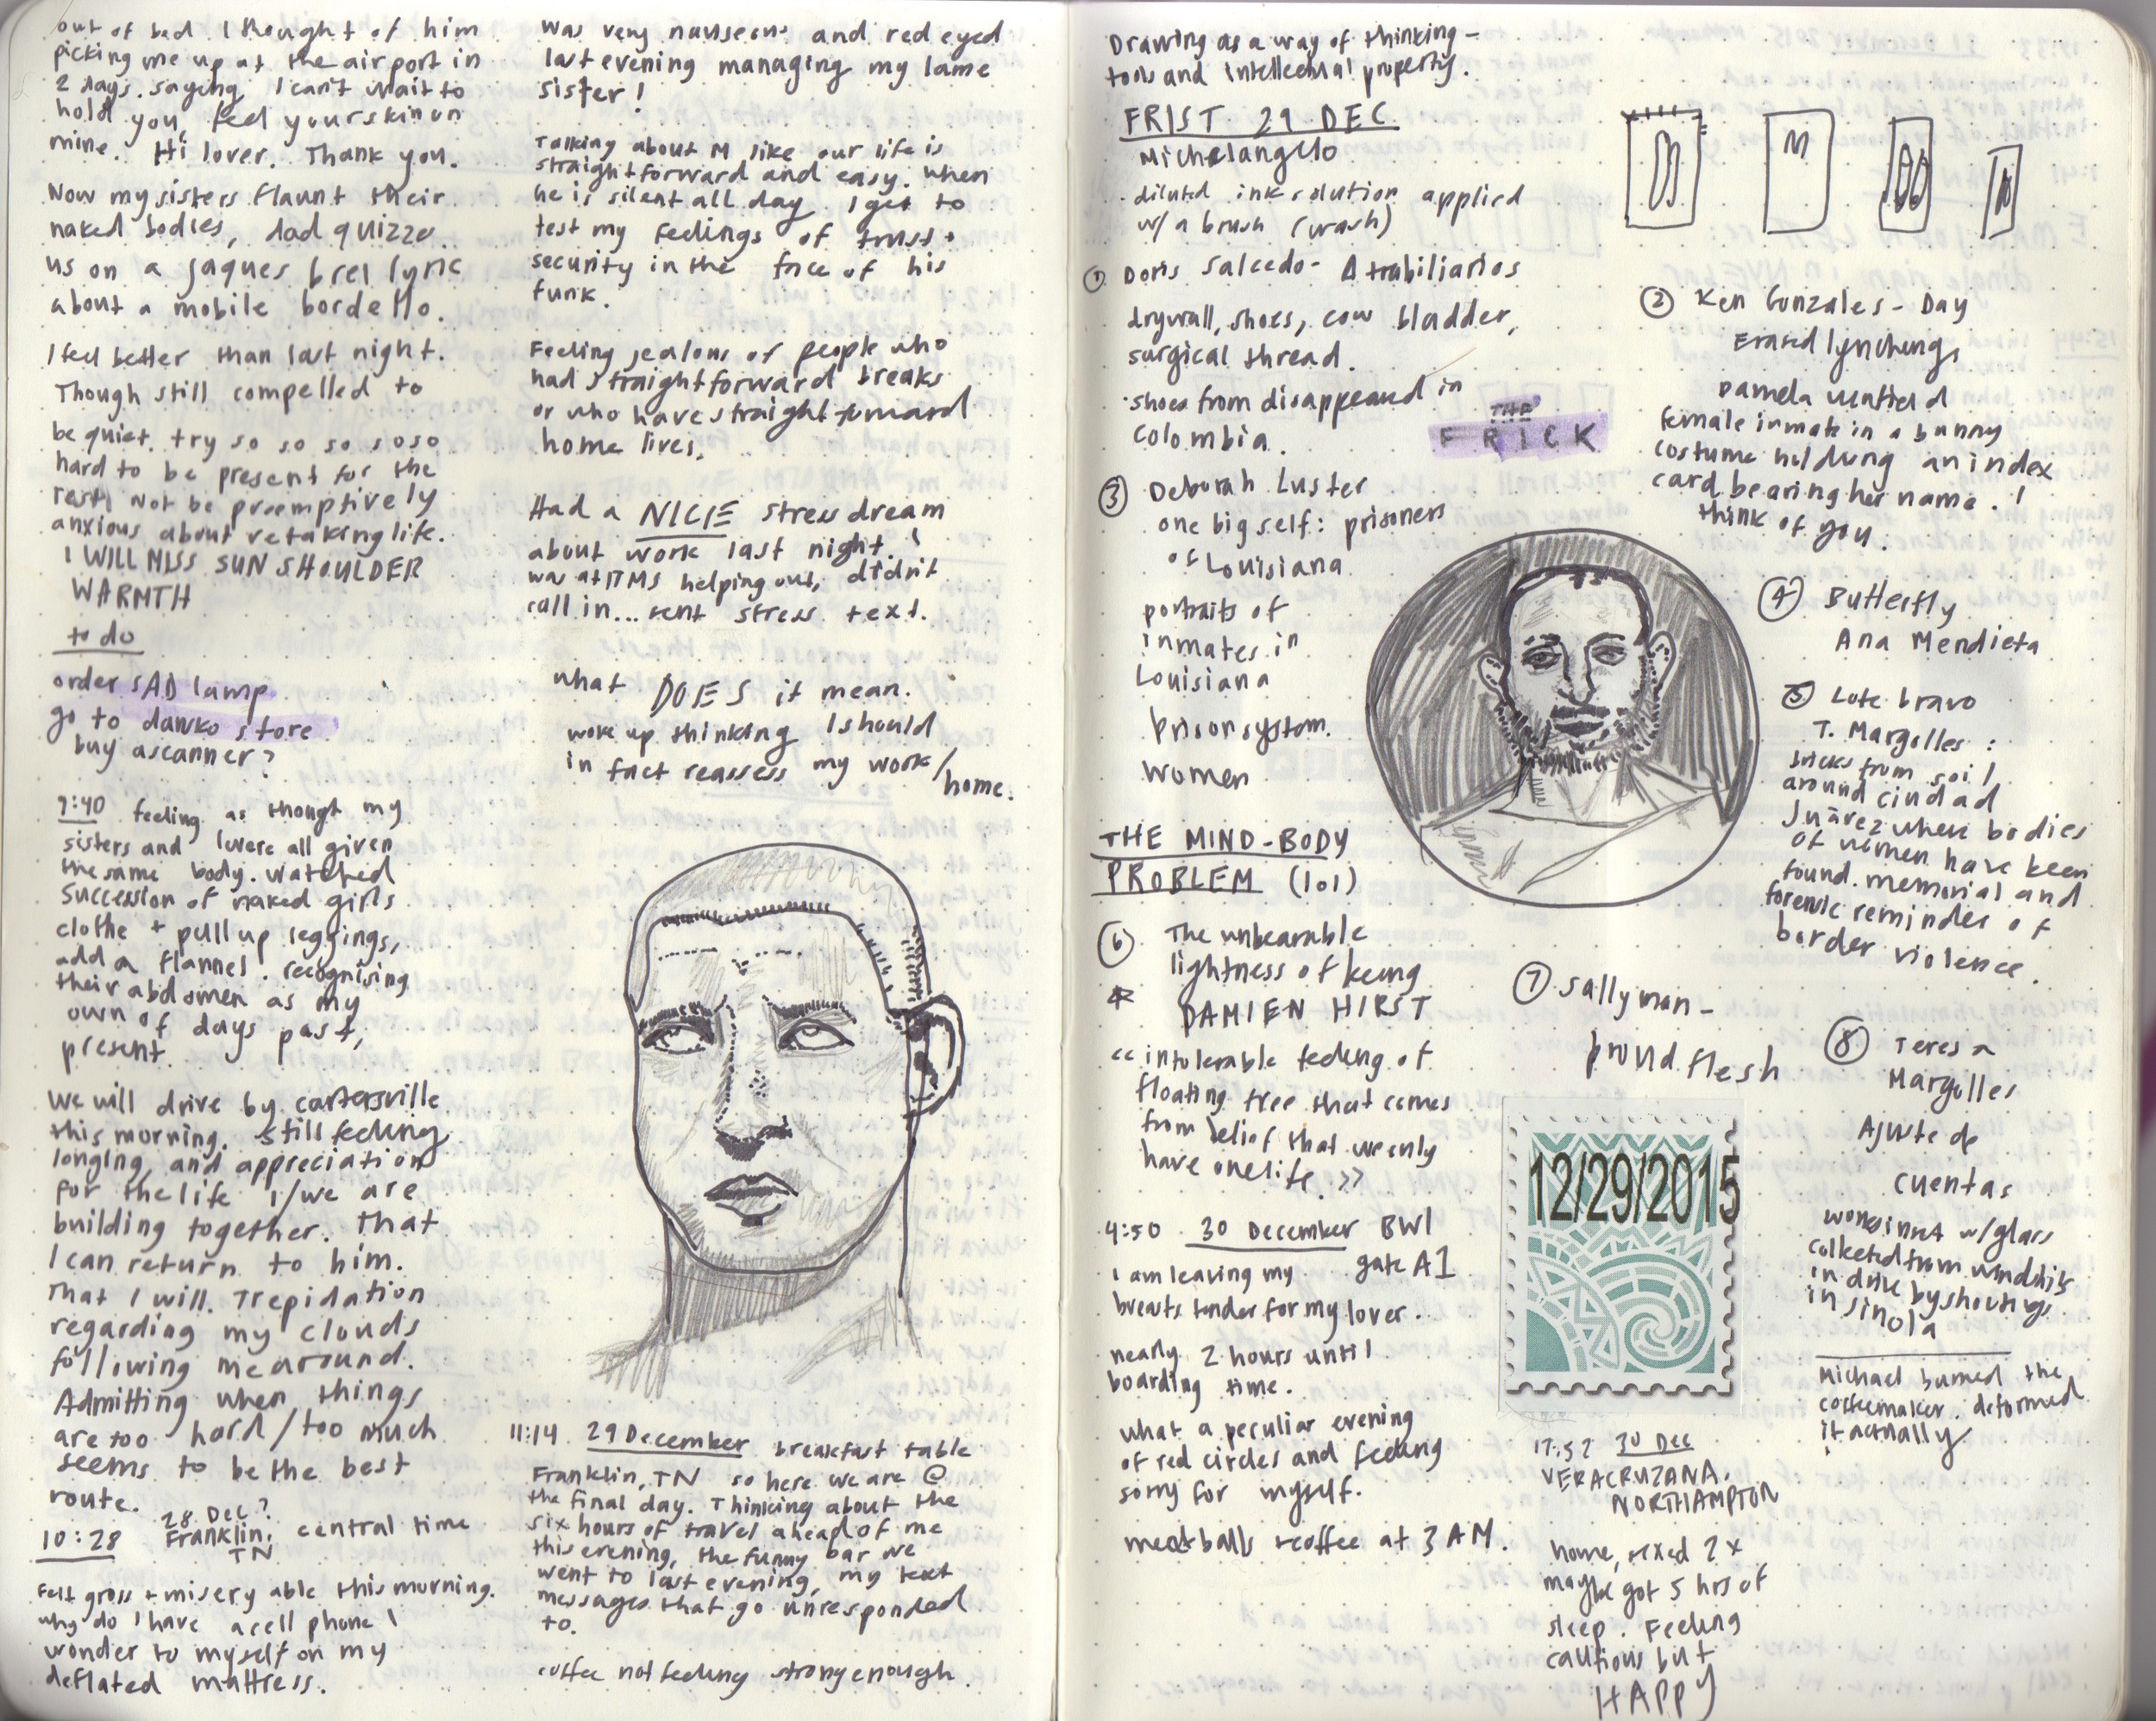 out of bed I thought of him
picking me up at the airport in
2 days. saying, I can't wait to
hold you, feel your skin on
mine. Hi lover. Thank you.
Now my sisters flaunt their
naked bodies, dad quizzes
us on a jaques brel lyric
about a mobile bordello.
I feel better than last night.
Though still compelled to
be quiet. try so so so soso
hard to be present for the
rest, Not be preemptively
anxious about retaking life.
I WILL MISS SUN SHOULDER
WARMTH
to do
order SAD lamp
go to dansko store
buy a scanner?
9:40 feeling as though my
sisters and I were all given
the same body. watched
succession of naked girls
clothe + pull up leggings,
add a flannel. recognising
their abdomen as my
own of days past,
present.
We will drive by cartersville
this morning. still feeling
longing, and appreciation
for the life i/we are
building together. That
I can return to him.
That I will. Trepidation
regarding my clouds
following me around.
Admitting when things
are too hard/too much
seems to be the best
route.
10:28 28 Dec? Franklin, TN central time
Felt gross + misery able this morning.
why do I have a cell phone I
wonder to myself on my
deflated mattress.
was very nauseous and red eyed
last evening managing my lame
sister!
Talking about M like our life is
straightforward and easy. when
he is silent all day. I get to
test my feelings of trust +
security in the face of his
funk.
Feeling jealous of people who
had straightforward breaks
or who have straight forward
home lives.
Had a NICE stress dream
about work last night!
was at ITMS helping out, didn't
call in... sent stress text.
what DOES it mean.
woke up thinking I should
in fact reassess my work/
home.
11:14 29 December breakfast table
Franklin, TN so here we are @
the final day. Thinking about the
six hours of travel ahead of me
this evening, the funny bar we
went to last evening, my text
messages that go unresponded
to.
coffee not feeling strong enough.
Drawing as a way of thinking -
tools and intellectual property.
FRIST 29 DEC
Michelangelo
· diluted ink solution applied
w/ a brush (wash)
① Doris Salcedo - Atrabiliarios
drywall, shoes, cow bladder,
surgical thread.
· shoes from disappeared in
colombia.
THE
FRICK
② Ken Gonzales - Day
Erased lynchings
Pamela
female inmate in a bunny
costume holding an index
card bearing her name. !
think of you.
③ Deborah Luster
one big self: prisoners
of Louisiana
portraits of
inmates in
Louisiana
prison system.
women
④ Butterfly
Ana Mendieta
⑤ Lote bravo
T. Margolles:
bricks from soil
around ciudad
Juárez where bodies
of women have been
found. memorial and
forensic reminder of
border violence.
THE MIND-BODY
PROBLEM (lol)
⑥ The unbearable
lightness of being
DAMIEN HIRST
<< intolerable feeling of
floating free that comes
from belief that we only
have one life. >>
⑦ Sally man -
proud flesh
⑧ Teresa
Margolles
Ajuste de
cuentas
w/glass
collected from windshields
in drive by shootings
in sinola
Michael burned the
coffeemaker. deformed
it actually
12/29/2015
4:50 30 December BWI
gate A1
I am leaving my
breasts tender for my lover.
nearly 2 hours until
boarding time.
what a peculiar evening
of red circles and feeling
sorry for myself.
meatballs + coffee at 3 AM.
17:57 30 Dec
VERACRUZANA,
NORTHAMPTON
home, sexed 2x
maybe got 5 hrs of
sleep. Feeling
cautious but
HAPPY